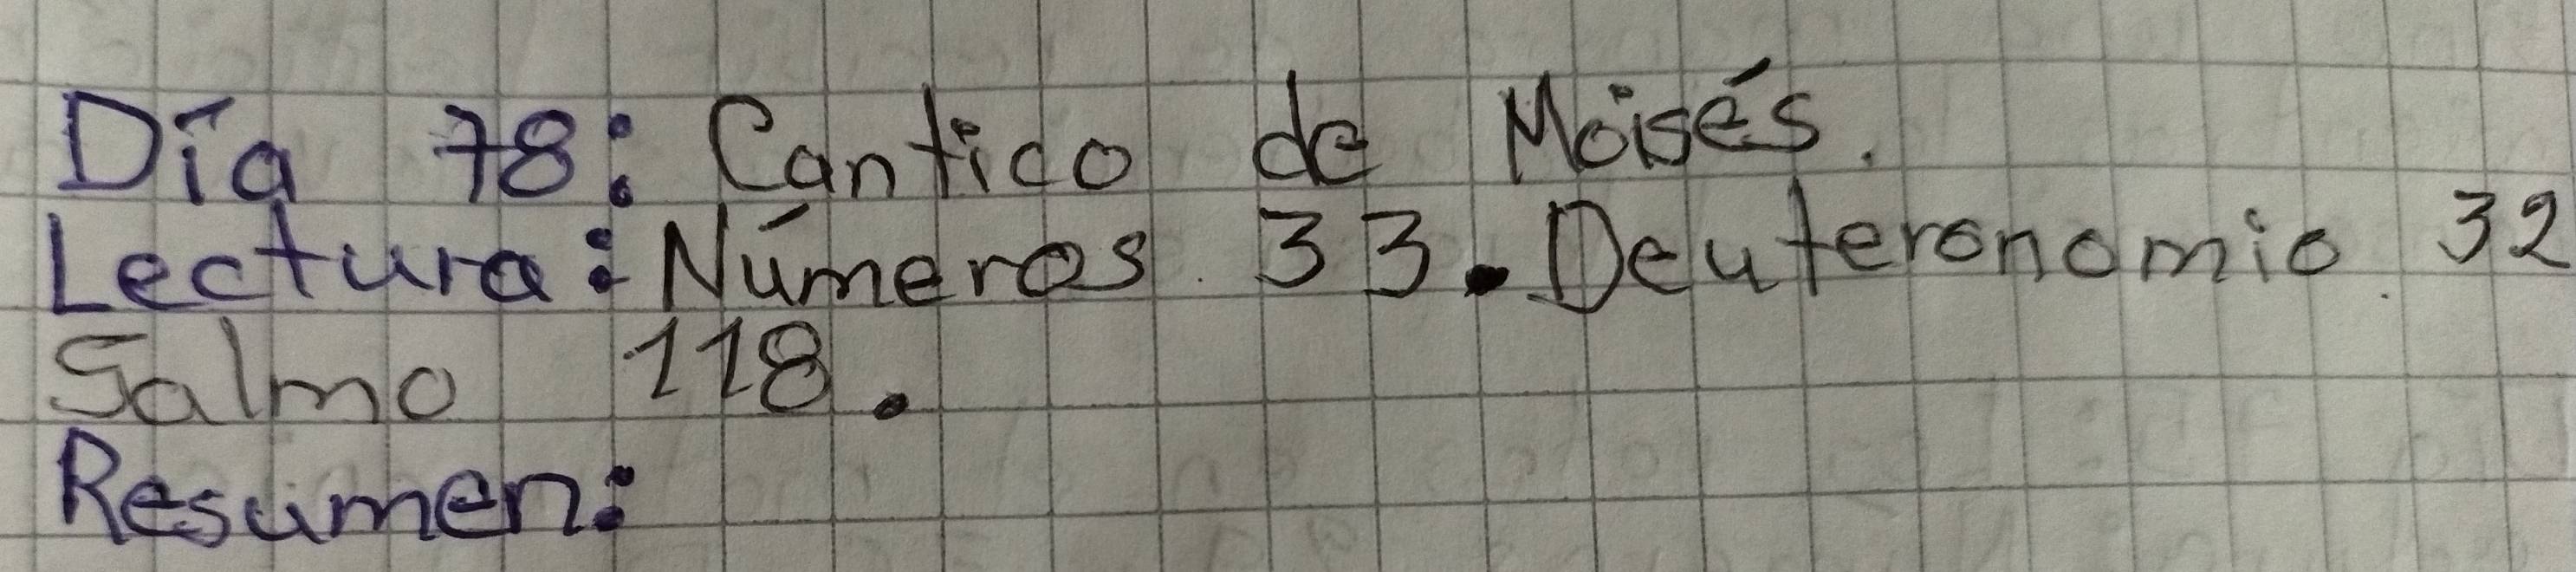 Día 78: Cantico de Moisés.
Lectura: Números. 33. Deuteronomio. 32
Salmo 118.
Resumen: